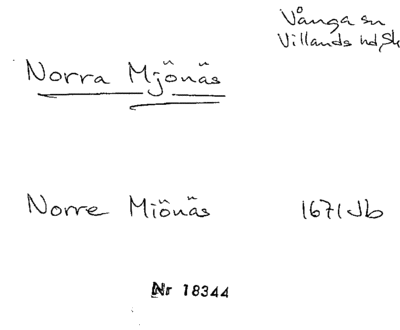 Vånga sn
Villands hd, Sk
Norra Mjönäs
Norre Miönäs 1671 Jb
Nr 18344